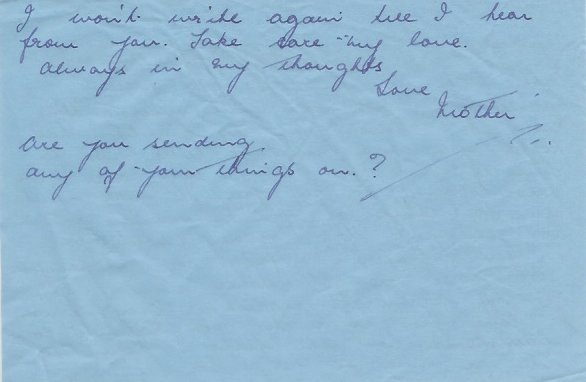 I won't write again till I hear
from you. Take care my love.
Always in my thoughts
Love
Mother
Are you sending
any of your things on.?